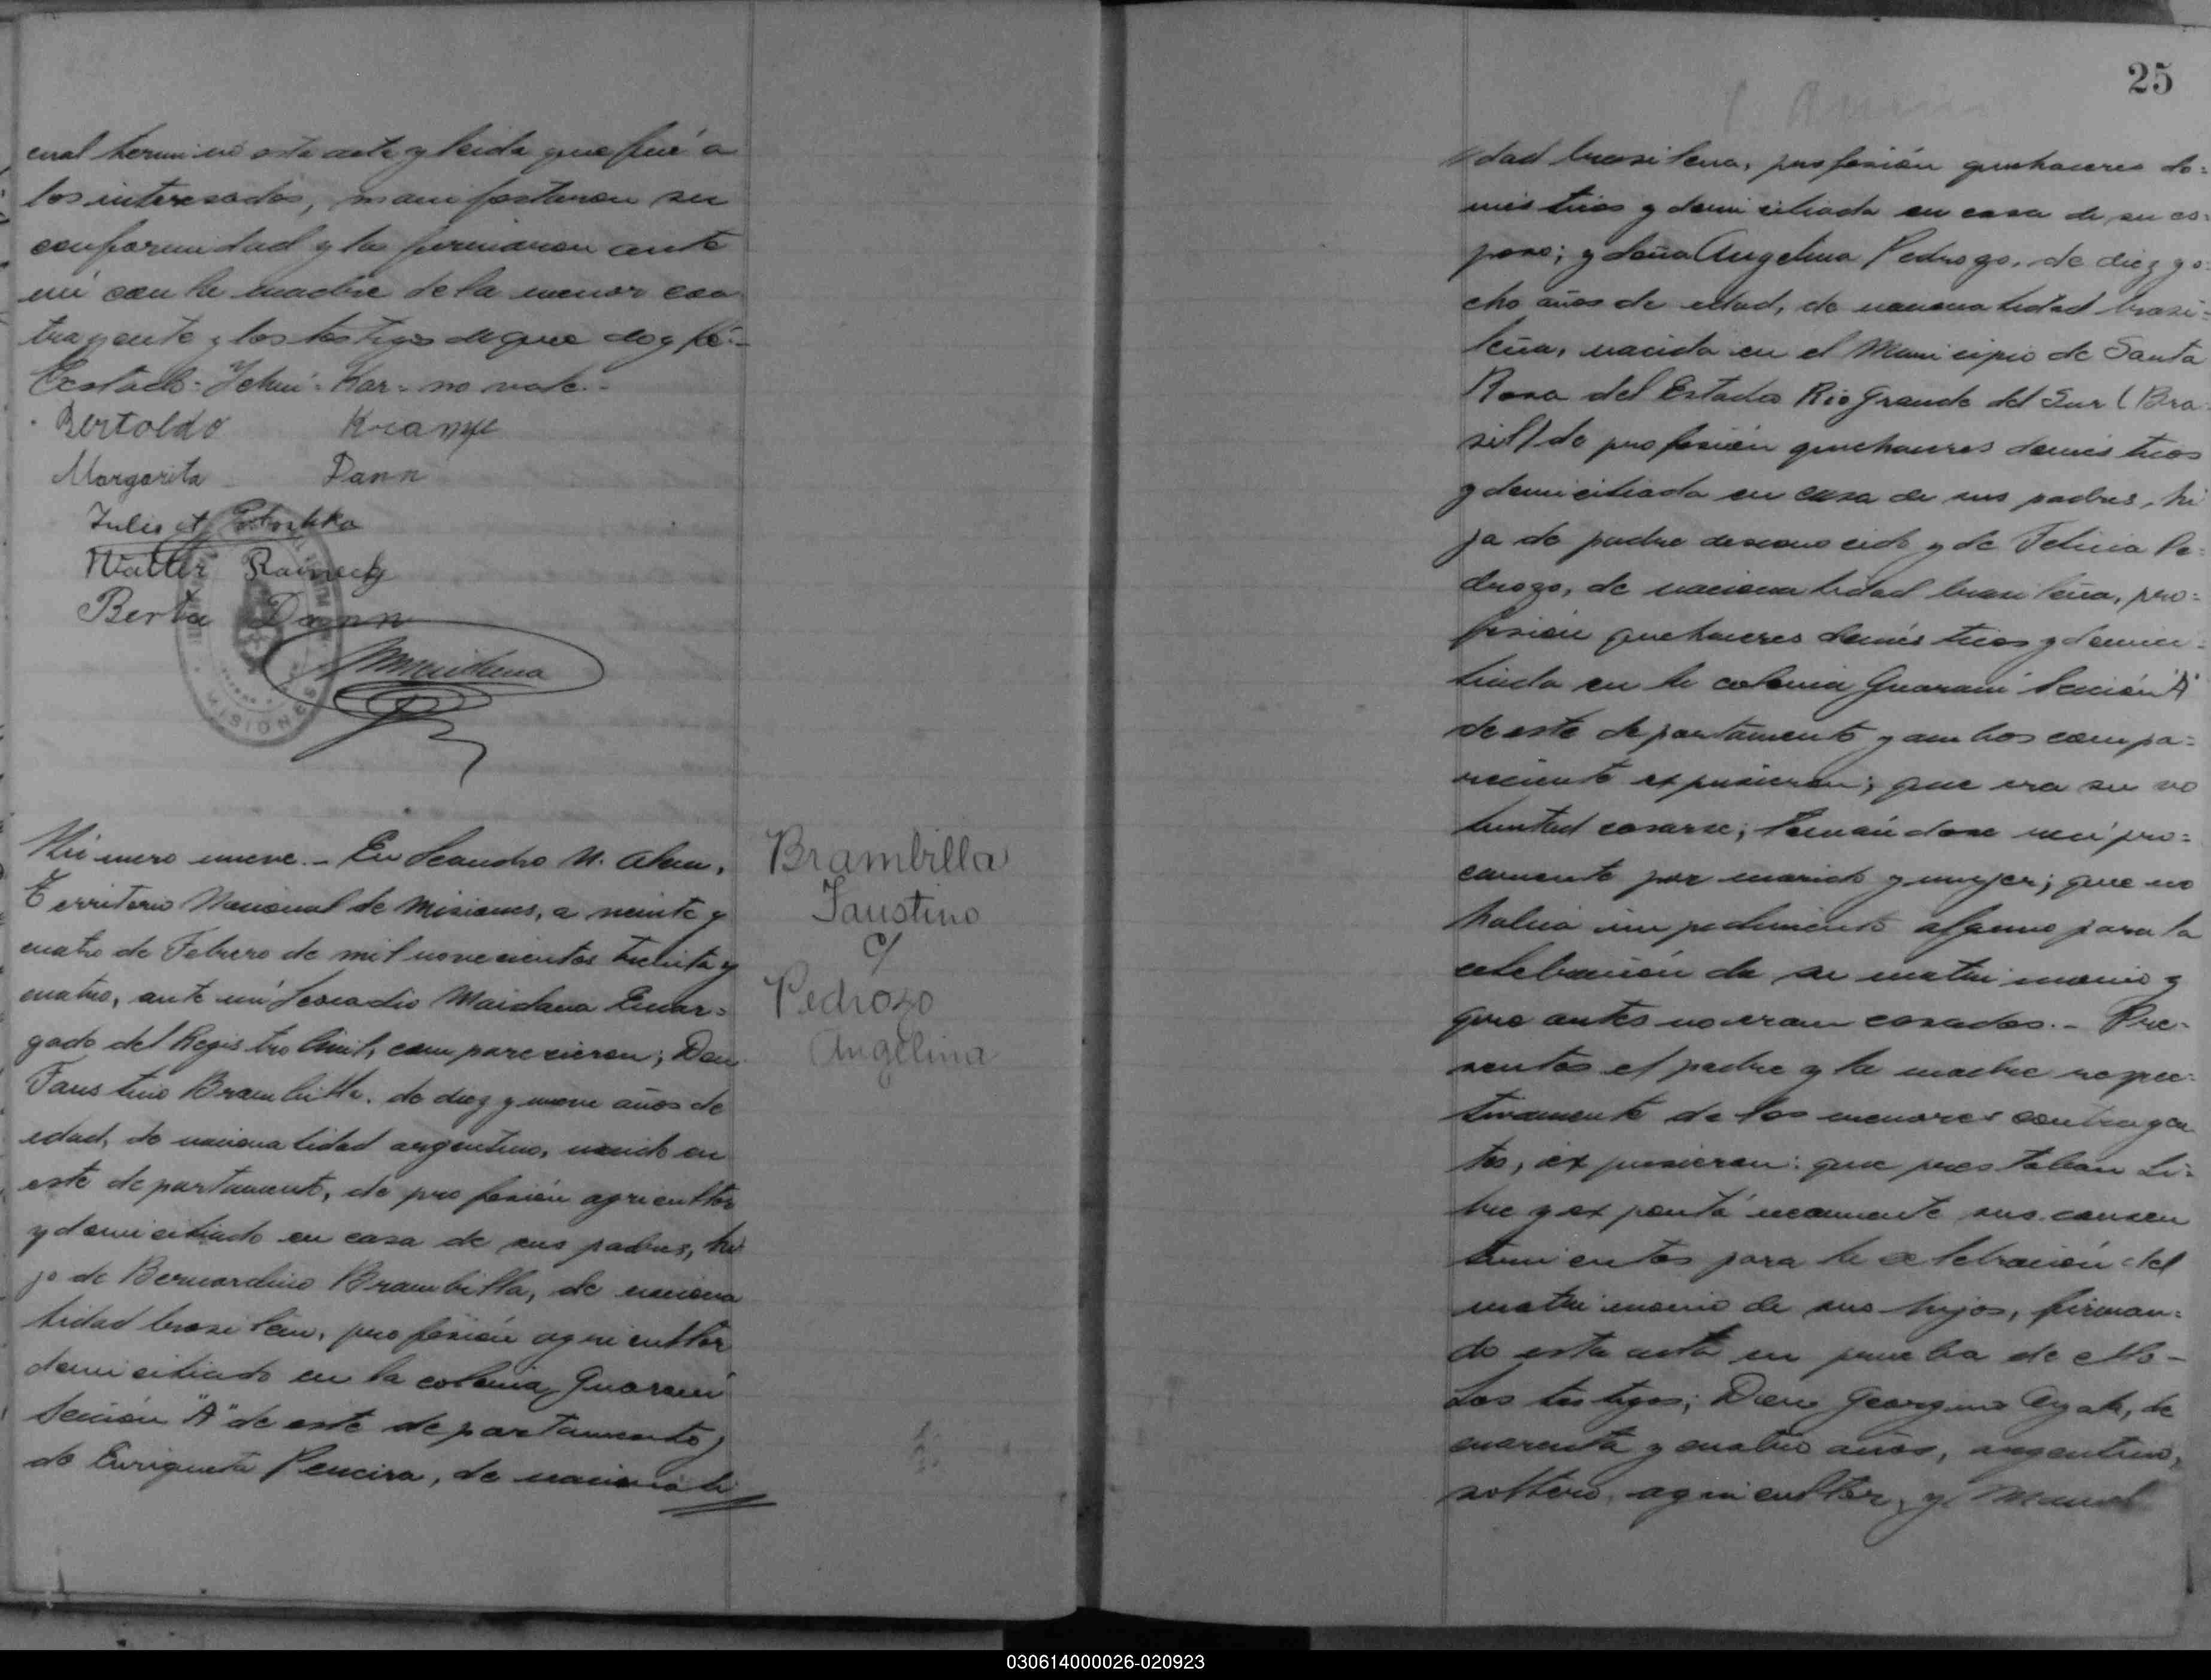 cual terminó esta acta y leida que fué a
los interesados, manifestaron su
conformidad y la firmaron ante
mi con la madre de la menor con
trayente y los testigos de que doy fé.-
Testado= = Kar= no vale.-
Bertoldo Kramp
Margarita Dann
Julio A.
Walter
Berta Dann
MISIONES
Número nueve.- En Leandro N. Alem,
Territorio Nacional de Misiones, a veinte y
cuatro de Febrero de mil novecientos treinta y
cuatro, ante mi Leocadio Maidana Encar=
gado del Registro Civil, comparecieron; Don
Faustino Brambilla, de diez y nueve años de
edad, de nacionalidad argentino, nacido en
este departamento, de profesión agricultor
y domiciliado en casa de sus padres, hi
jo de Bernardino Brambilla, de naciona
lidad brasilera, profesión agricultor
domiciliado en la colonia Guaraní
Sección "A" de este departamento y
de Enriqueta Pereira, de nacionali
Brambilla
Faustino
c/
Pedrozo
Angelina
25
dad brasilera, profesión quehaceres do=
mésticos y domiciliada en casa de su es=
poso; y doña Angelina Pedrozo, de diez y o=
cho años de edad, de nacionalidad brasi=
leña, nacida en el Municipio de Santa
Rosa del Estado Rio Grande del Sur (Bra
sil) de profesión quehaceres domésticos
y domiciliada en casa de sus padres, hi
ja de padre desconocido y de Felicia Pe=
drozo, de nacionalidad brasileña, pro=
fesión quehaceres domésticos y domici=
liada en la colonia Guaraní Sección "A"
de este departamento y ambos compa=
reciente expusieron; que era su vo
luntad casarse; tomándose recípro=
camente por marido y mujer; que no
habia impedimento alguno para la
celebración de su matrimonio y
que antes no eran casados.- Pre=
sentes el padre y la madre respec=
tivamente de los menores contrayen
tes, expusieron: que prestaban li=
bre y expontáneamente sus consen
timientos para la celebración del
matrimonio de sus hijos, firman=
do esta acta en prueba de ello-
Los testigos; Don Georgino Ayala, de
cuarenta y cuatro años, argentino,
soltero, agricultor, y Manuel
030614000026-020923